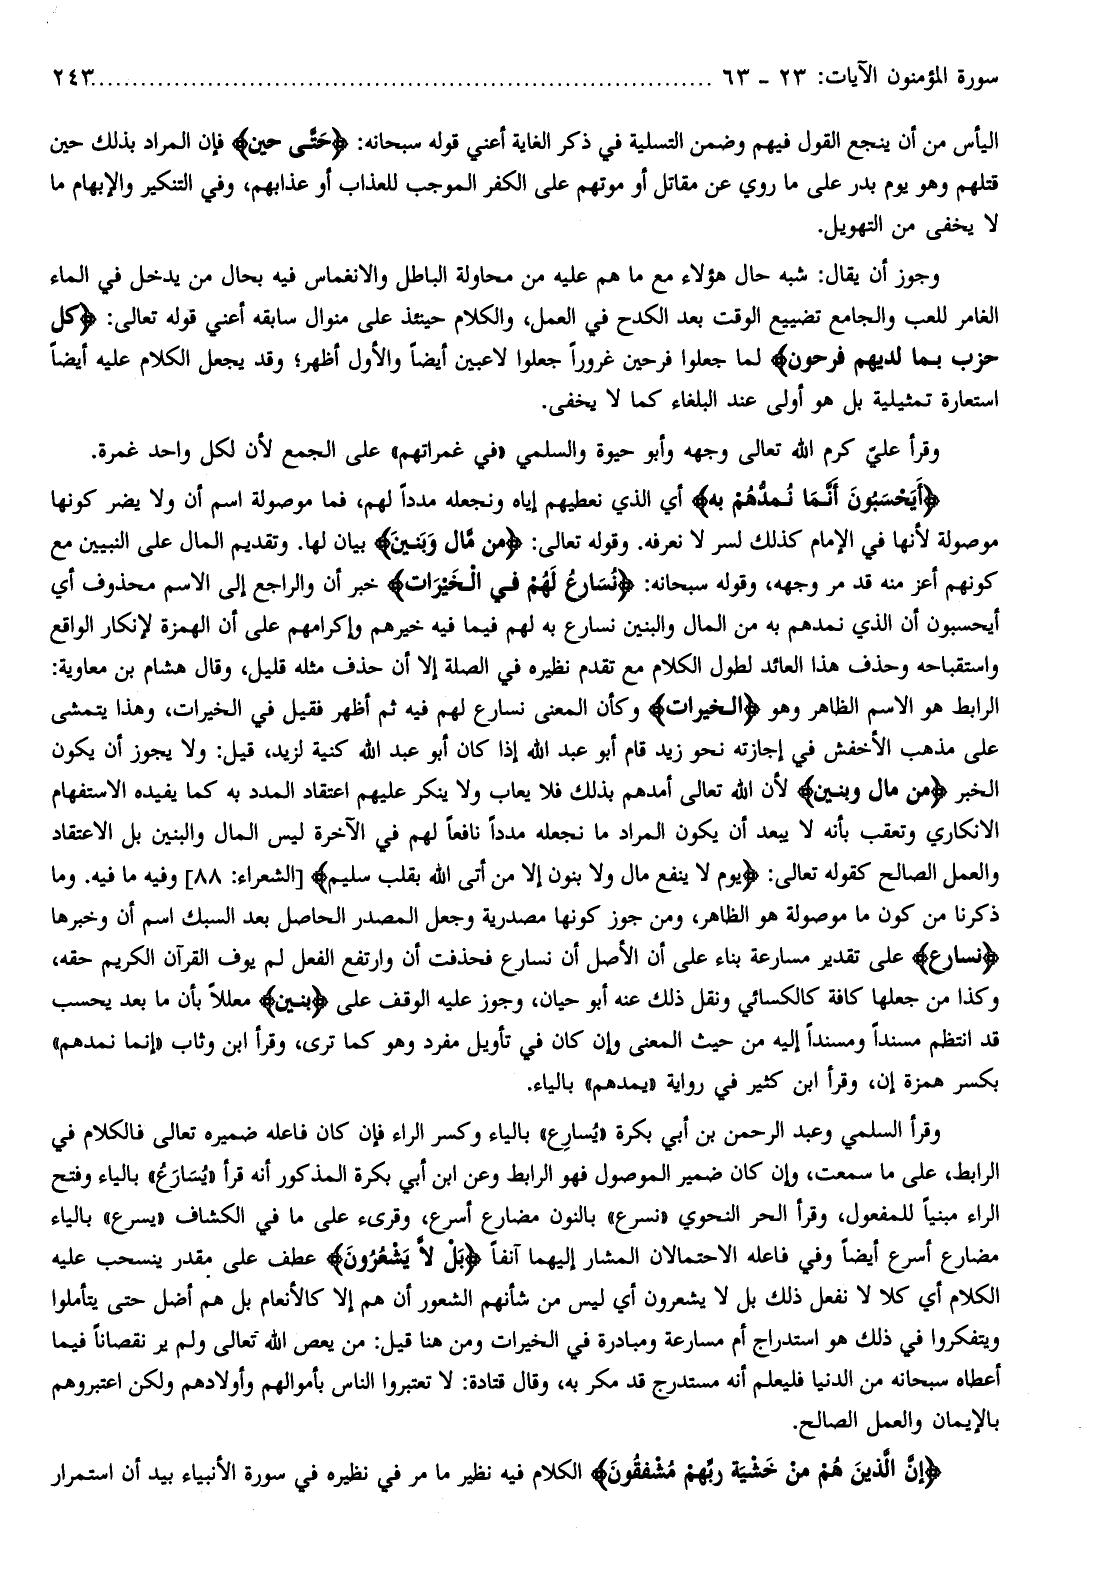 سورة المؤمنون الآيات: ٢٣ - ٦٣ ........................................................................ ٢٤٣
اليأس من أن ينجع القول فيهم وضمن التسلية في ذكر الغاية أعني قوله سبحانه: ﴿حَتَّى حين﴾ فإن المراد بذلك حين
قتلهم وهو يوم بدر على ما روي عن مقاتل أو موتهم على الكفر الموجب للعذاب أو عذابهم، وفي التنكير والإبهام ما
لا يخفى من التهويل.
وجوز أن يقال: شبه حال هؤلاء مع ما هم عليه من محاولة الباطل والانغماس فيه بحال من يدخل في الماء
الغامر للعب والجامع تضييع الوقت بعد الكدح في العمل، والكلام حينئذ على منوال سابقه أعني قوله تعالى: ﴿كل
حزب بما لديهم فرحون﴾ لما جعلوا فرحين غروراً جعلوا لاعبين أيضاً والأول أظهر؛ وقد يجعل الكلام عليه أيضاً
استعارة تمثيلية بل هو أولى عند البلغاء كما لا يخفى.
وقرأ عليّ كرم الله تعالى وجهه وأبو حيوة والسلمي «في غمراتهم» على الجمع لأن لكل واحد غمرة.
﴿أَيَحْسَبُونَ أَنَّمَا نُمدُّهُمْ به﴾ أي الذي نعطيهم إياه ونجعله مدداً لهم، فما موصولة اسم أن ولا يضر كونها
موصولة لأنها في الإمام كذلك لسر لا نعرفه. وقوله تعالى: ﴿من مَّال وَبَنينَ﴾ بيان لها. وتقديم المال على النبيين مع
كونهم أعز منه قد مر وجهه، وقوله سبحانه: ﴿نُسَارعُ لَهُمْ في الْخَيْرَات﴾ خبر أن والراجع إلى الاسم محذوف أي
أيحسبون أن الذي نمدهم به من المال والبنين نسارع به لهم فيما فيه خيرهم وإكرامهم على أن الهمزة لإنكار الواقع
واستقباحه وحذف هذا العائد لطول الكلام مع تقدم نظيره في الصلة إلا أن حذف مثله قليل، وقال هشام بن معاوية:
الرابط هو الاسم الظاهر وهو ﴿الخيرات﴾ وكأن المعنى نسارع لهم فيه ثم أظهر فقيل في الخيرات، وهذا يتمشى
على مذهب الأخفش في إجازته نحو زيد قام أبو عبد الله إذا كان أبو عبد الله كنية لزيد، قيل: ولا يجوز أن يكون
الخبر ﴿من مال وبنين﴾ لأن الله تعالى أمدهم بذلك فلا يعاب ولا ينكر عليهم اعتقاد المدد به كما يفيده الاستفهام
الانكاري وتعقب بأنه لا يبعد أن يكون المراد ما نجعله مدداً نافعاً لهم في الآخرة ليس المال والبنين بل الاعتقاد
والعمل الصالح كقوله تعالى: ﴿يوم لا ينفع مال ولا بنون إلا من أتى الله بقلب سليم﴾ [الشعراء: ٨٨] وفيه ما فيه. وما
ذكرنا من كون ما موصولة هو الظاهر، ومن جوز كونها مصدرية وجعل المصدر الحاصل بعد السبك اسم أن وخبرها
﴿نسارع﴾ على تقدير مسارعة بناء على أن الأصل أن نسارع فحذفت أن وارتفع الفعل لم يوف القرآن الكريم حقه،
وكذا من جعلها كافة كالكسائي ونقل ذلك عنه أبو حيان، وجوز عليه الوقف على ﴿بنين﴾ معللاً بأن ما بعد يحسب
قد انتظم مسنداً ومسنداً إليه من حيث المعنى وإن كان في تأويل مفرد وهو كما ترى، وقرأ ابن وثاب «إنما نمدهم»
بكسر همزة إن، وقرأ ابن كثير في رواية «يمدهم» بالياء.
وقرأ السلمي وعبد الرحمن بن أبي بكرة «يُسارِع» بالياء وكسر الراء فإن كان فاعله ضميره تعالى فالكلام في
الرابط، على ما سمعت، وإن كان ضمير الموصول فهو الرابط وعن ابن أبي بكرة المذكور أنه قرأ «يُسَارَعُ» بالياء وفتح
الراء مبنياً للمفعول، وقرأ الحر النحوي «نسرع» بالنون مضارع أسرع، وقرىء على ما في الكشاف «يسرع» بالياء
مضارع أسرع أيضاً وفي فاعله الاحتمالان المشار إليهما آنفاً ﴿بَلْ لاَّ يَشْعُرُونَ﴾ عطف على مقدر ينسحب عليه
الكلام أي كلا لا نفعل ذلك بل لا يشعرون أي ليس من شأنهم الشعور أن هم إلا كالأنعام بل هم أضل حتى يتأملوا
ويتفكروا في ذلك هو استدراج أم مسارعة ومبادرة في الخيرات ومن هنا قيل: من يعص الله تعالى ولم ير نقصاناً فيما
أعطاه سبحانه من الدنيا فليعلم أنه مستدرج قد مكر به، وقال قتادة: لا تعتبروا الناس بأموالهم وأولادهم ولكن اعتبروهم
بالإيمان والعمل الصالح.
﴿إنَّ الَّذينَ هُمْ منْ خَشْيَة ربِّهمْ مُشْفقُونَ﴾ الكلام فيه نظير ما مر في نظيره في سورة الأنبياء بيد أن استمرار